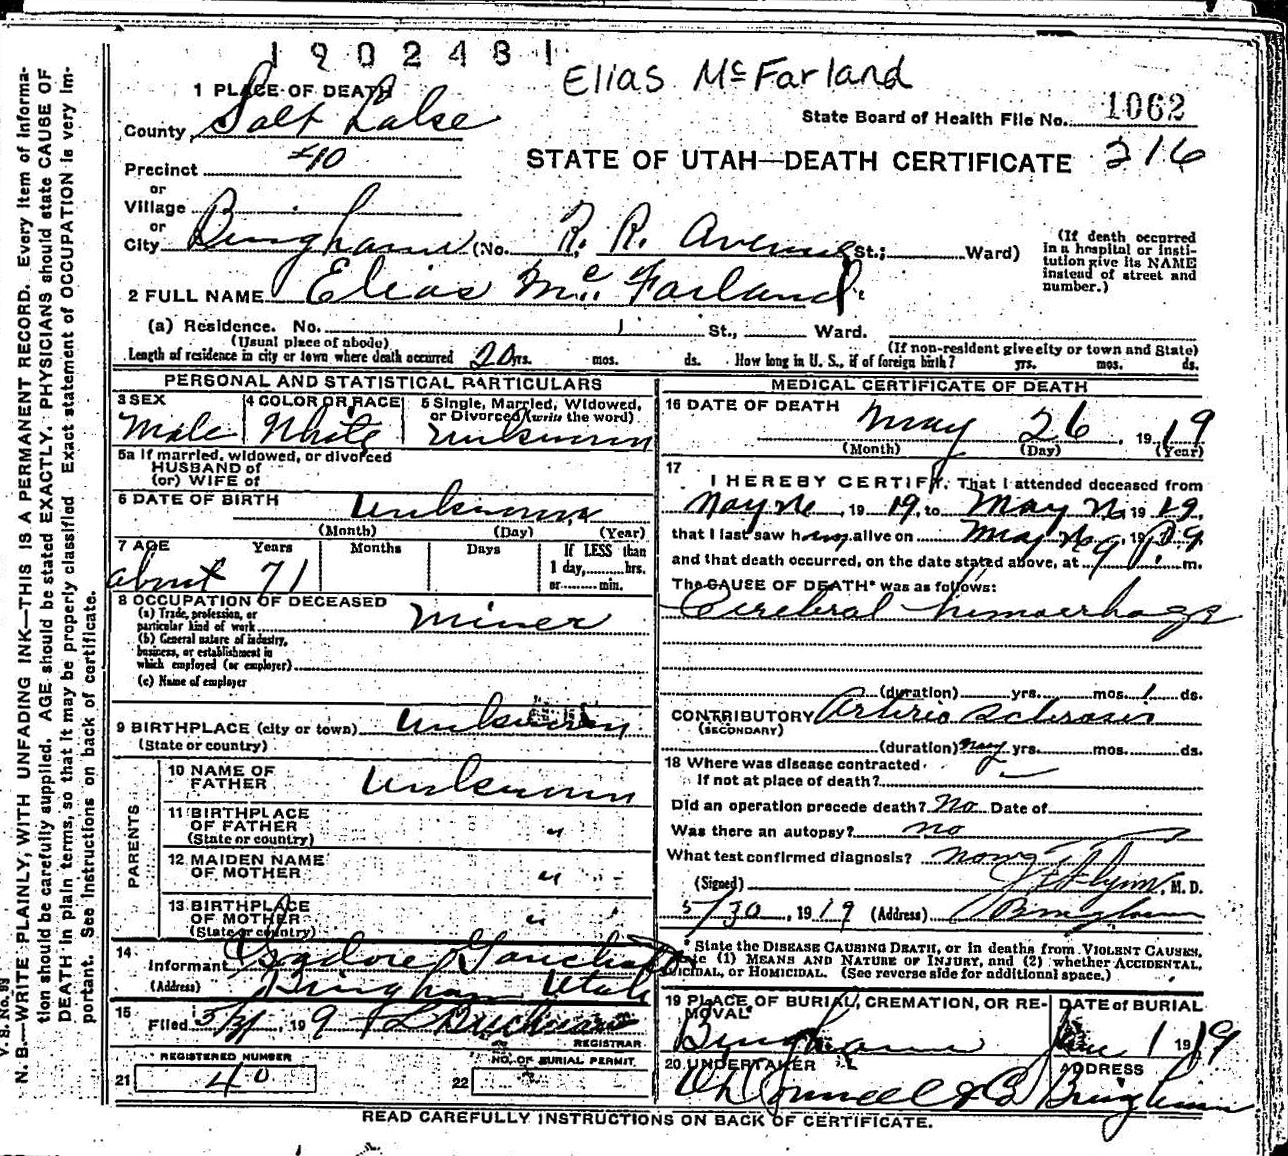 1902481
Elias McFarland
1 PLACE OF DEATH
State Board of Health File No. 1062
County Salt Lake
Precinct 40
STATE OF UTAH—DEATH CERTIFICATE 216
or
Village
or
City Bingham (No. R. R. Avenue St.; Ward)
(If death occurred in a hospital or institution give its NAME instead of street and number.)
2 FULL NAME Elias Mc Farland
(a) Residence. No. St., Ward.
(Usual place of abode) (If non-resident give city or town and State)
Length of residence in city or town where death occurred 20 yrs. mos. ds. How long in U. S., if of foreign birth? yrs. mos. ds.
PERSONAL AND STATISTICAL PARTICULARS
3 SEX Male
4 COLOR OR RACE White
5 Single, Married, Widowed, or Divorced (write the word) unknown
5a If married, widowed, or divorced
HUSBAND of
(or) WIFE of
6 DATE OF BIRTH unknown
(Month) (Day) (Year)
7 AGE Years Months Days If LESS than 1 day, hrs. or min.
about 71
8 OCCUPATION OF DECEASED
(a) Trade, profession, or particular kind of work miner
(b) General nature of industry, business, or establishment in which employed (or employer)
(c) Name of employer
9 BIRTHPLACE (city or town) unknown
(State or country)
PARENTS
10 NAME OF FATHER unknown
11 BIRTHPLACE OF FATHER (State or country) "
12 MAIDEN NAME OF MOTHER "
13 BIRTHPLACE OF MOTHER (State or country) "
14 Informant
(Address) Bingham Utah
15 Filed 5/31 19 9
REGISTRAR
REGISTERED NUMBER
NO. OF BURIAL PERMIT
21 40
22
MEDICAL CERTIFICATE OF DEATH
16 DATE OF DEATH May 26, 1919
(Month) (Day) (Year)
17
I HEREBY CERTIFY. That I attended deceased from
19 19, to May 19 19
that I last saw h alive on May 19
and that death occurred, on the date stated above, at 9 P. m.
The CAUSE OF DEATH* was as follows:
Cerebral hemorrhage
(duration) yrs. mos. 1 ds.
CONTRIBUTORY Arterio sclerosis
(SECONDARY)
(duration) many yrs. mos. ds.
18 Where was disease contracted
If not at place of death?
Did an operation precede death? No Date of
Was there an autopsy? no
What test confirmed diagnosis? none
(Signed) Flynn, M. D.
5/30, 1919 (Address) Bingham
* State the DISEASE CAUSING DEATH, or in deaths from VIOLENT CAUSES, state (1) MEANS AND NATURE OF INJURY, and (2) whether ACCIDENTAL, SUICIDAL, or HOMICIDAL. (See reverse side for additional space.)
19 PLACE OF BURIAL, CREMATION, OR REMOVAL
Bingham
DATE of BURIAL
June 1 1919
20 UNDERTAKER
O'Donnell & Co
ADDRESS
Bingham
READ CAREFULLY INSTRUCTIONS ON BACK OF CERTIFICATE.
V. S. No. 93
N. B.—WRITE PLAINLY, WITH UNFADING INK—THIS IS A PERMANENT RECORD. Every item of information should be carefully supplied. AGE should be stated EXACTLY. PHYSICIANS should state CAUSE OF DEATH in plain terms, so that it may be properly classified. Exact statement of OCCUPATION is very important. See instructions on back of certificate.